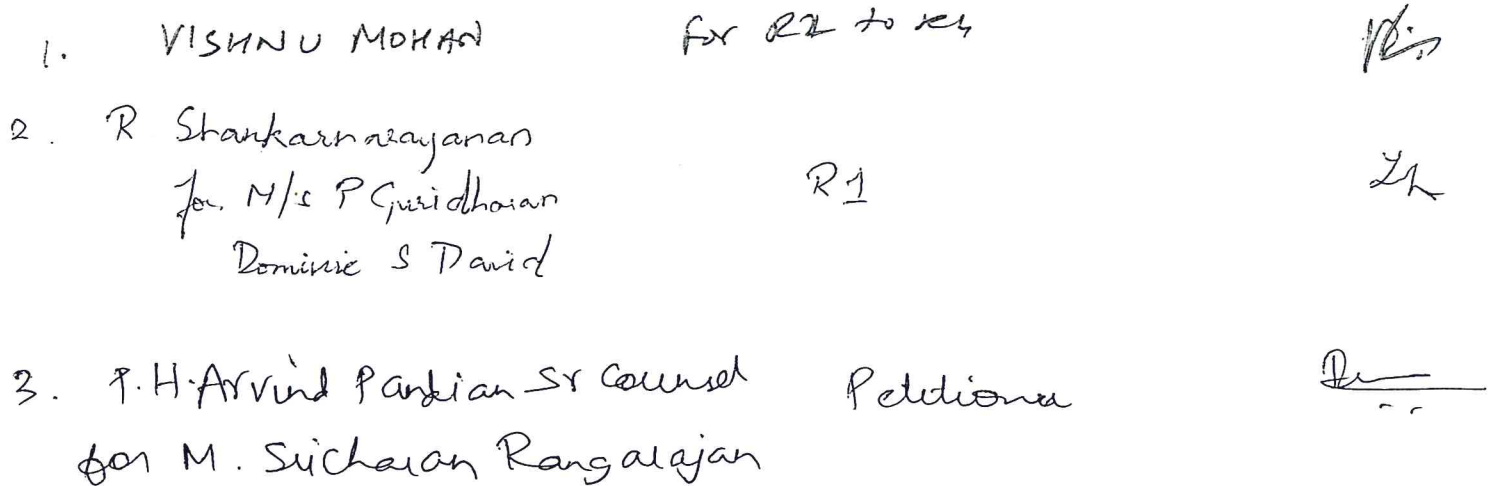 1. VISHNU MOHAN for R2 to R4
2. R Shankarnarayanan
for M/s P Guridharan R1
Dominic S David
3. P.H.Arvind Pandian Sr Counsel Petitioner
for M. Sricharan Rangarajan